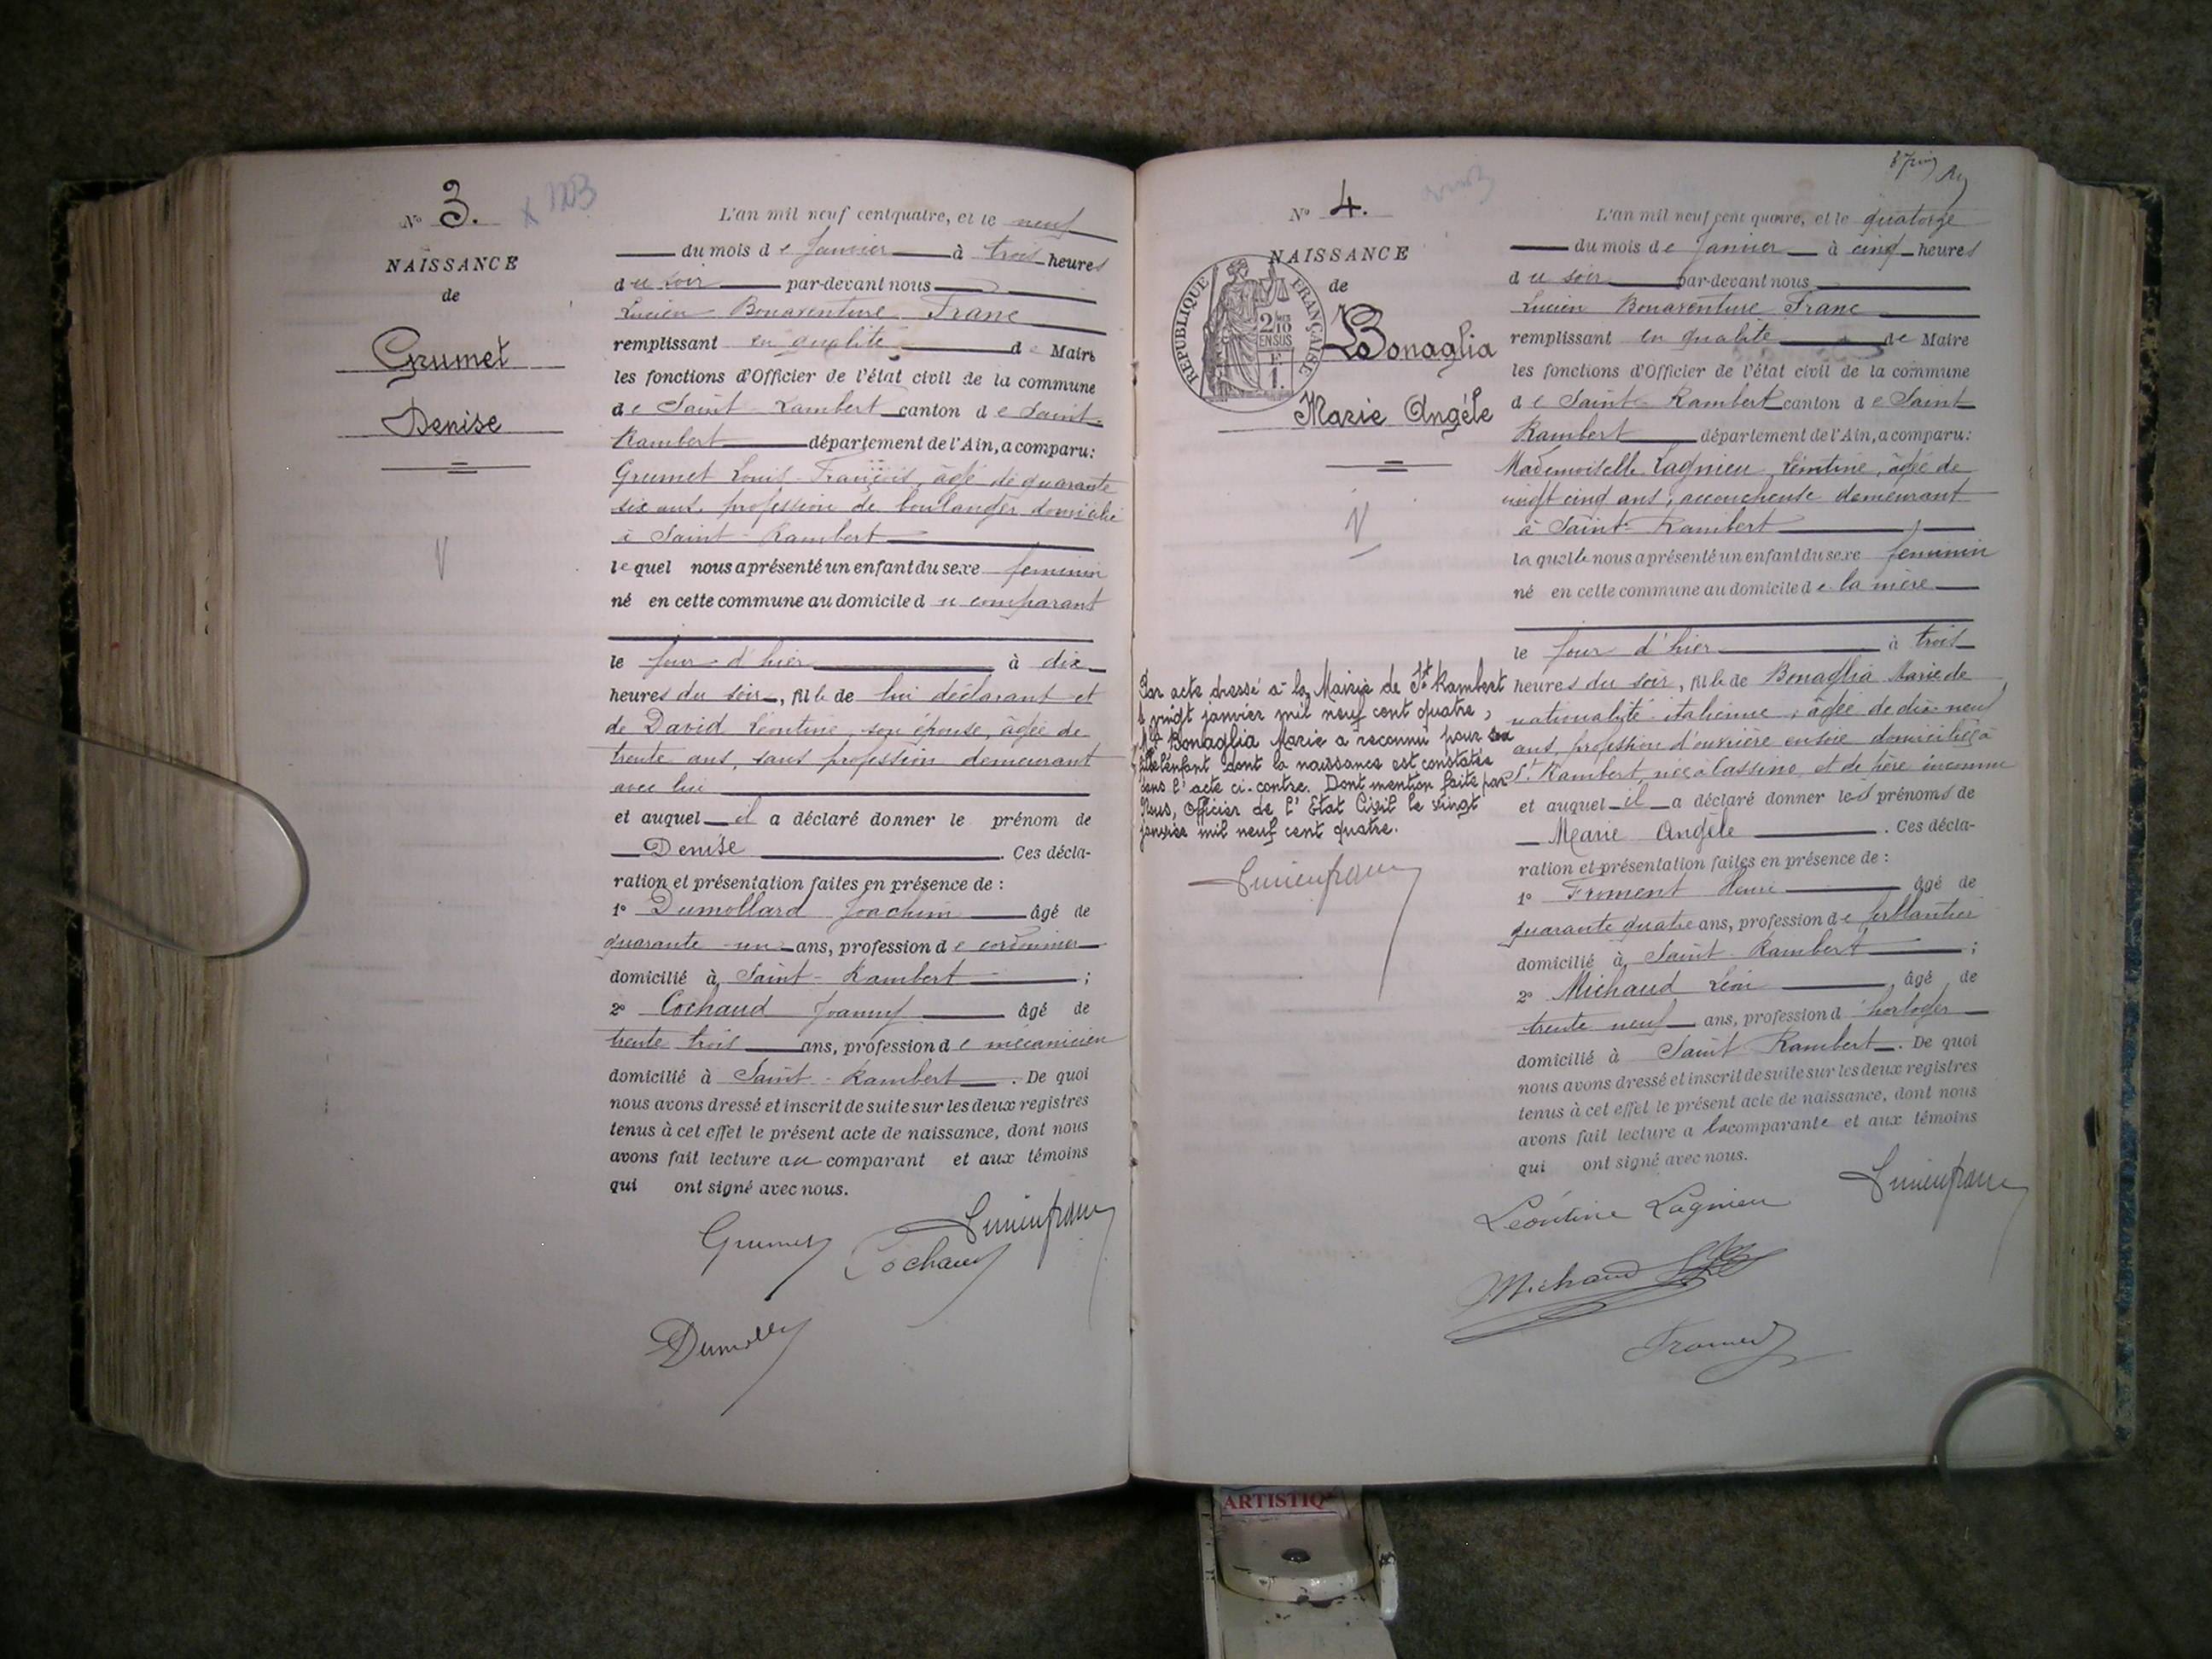 N° 3.
NAISSANCE
de
Grumet
Denise
L'an mil neuf cent quatre, et le neuf
du mois de Janvier à trois heures
du soir par-devant nous
Lucien Bonaventure Franc
remplissant en qualité de Maire
les fonctions d'Officier de l'état civil de la commune
de Saint-Rambert canton de Saint-
Rambert département de l'Ain, a comparu:
Grumet Louis François, âgé de quarante
six ans, profession de boulanger domicilié
à Saint-Rambert
lequel nous a présenté un enfant du sexe feminin
né en cette commune au domicile du comparant
le jour d'hier à dix
heures du soir, fille de lui déclarant et
de David Léontine, son épouse, âgée de
trente ans, sans profession demeurant
avec lui
et auquel il a déclaré donner le prénom de
Denise. Ces décla-
ration et présentation faites en présence de :
1° Dumollard Joachim âgé de
quarante-un ans, profession de cordonnier
domicilié à Saint-Rambert ;
2° Cochaud Joanny âgé de
trente trois ans, profession de mécanicien
domicilié à Saint-Rambert. De quoi
nous avons dressé et inscrit de suite sur les deux registres
tenus à cet effet le présent acte de naissance, dont nous
avons fait lecture au comparant et aux témoins
qui ont signé avec nous.
Grumet Cochaud Lucien franc
N° 4.
NAISSANCE
de
RÉPUBLIQUE FRANÇAISE
2/10 EN SUS
1 F.
Bonaglia
Marie Angèle
Par acte dressé à la Mairie de St Rambert
le vingt janvier mil neuf cent quatre,
Mlle Bonaglia Marie a reconnu pour sa
fille l'enfant dont la naissance est constatée
dans l'acte ci-contre. Dont mention faite par
Nous, Officier de l'Etat Civil le vingt
janvier mil neuf cent quatre.
Lucien franc
L'an mil neuf cent quatre, et le quatorze
du mois de Janvier à cinq heures
du soir par-devant nous
Lucien Bonaventure Franc
remplissant en qualité de Maire
les fonctions d'Officier de l'état civil de la commune
de Saint-Rambert canton de Saint
Rambert département de l'Ain, a comparu:
Mademoiselle Lagnieu Léontine, âgée de
vingt cinq ans, accoucheuse demeurant
à Saint-Rambert
laquelle nous a présenté un enfant du sexe feminin
né en cette commune au domicile de la mère
le jour d'hier à trois
heures du soir, fille de Bonaglia Marie de
nationalité italienne, âgée de dix neuf
ans, profession d'ouvrière en soie domiciliée à
St Rambert, née à Cassino, et de père inconnu
et auquel il a déclaré donner les prénoms de
Marie Angèle. Ces décla-
ration et présentation faites en présence de :
1° Froment Henri âgé de
quarante quatre ans, profession de ferblantier
domicilié à Saint Rambert ;
2° Michaud Léon âgé de
trente neuf ans, profession d horloger
domicilié à Saint Rambert. De quoi
nous avons dressé et inscrit de suite sur les deux registres
tenus à cet effet le présent acte de naissance, dont nous
avons fait lecture a la comparante et aux témoins
qui ont signé avec nous.
Léontine Lagnieu Lucien franc
Michaud
Froment
ARTISTIQ